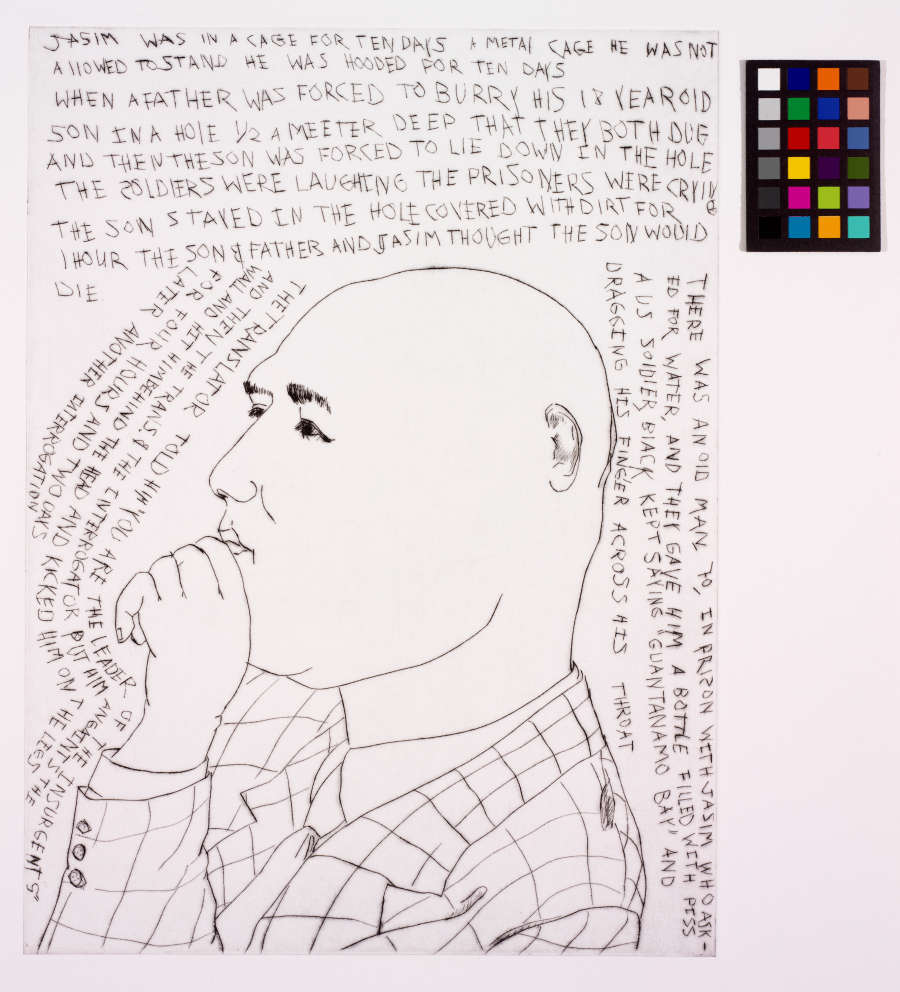 JASIM WAS IN A CAGE FOR TEN DAYS A METAL CAGE HE WAS NOT
ALLOWED TO STAND HE WAS HOODED FOR TEN DAYS
WHEN A FATHER WAS FORCED TO BURRY HIS 18 YEAR OLD
SON IN A HOLE 1/2 A MEETER DEEP THAT THEY BOTH DUG
AND THEN THE SON WAS FORCED TO LIE DOWN IN THE HOLE
THE SOLDIERS WERE LAUGHING THE PRISONERS WERE CRYING
THE SON STAYED IN THE HOLE COVERED WITH DIRT FOR
1 HOUR THE SON & FATHER AND JASIM THOUGHT THE SON WOULD
DIE
THE TRANSLATOR TOLD HIM "YOU ARE THE LEADER OF THE INSURGENTS"
AND THEN THE TRANS. & THE INTERROGATOR BUT HIM THE
WALL AND HIT HIM BEHIND THE HEAD AND KICKED HIM ON THE LEGS THE
FOR FOUR HOURS AND TWO DAYS
LATER ANOTHER INTERROGATION
THERE WAS AN OLD MAN, 70, IN PRIZON WITH JASIM WHO ASK-
ED FOR WATER, AND THEY GAVE HIM A BOTTLE FILLED WITH PISS
A US SOLDIER BLACK KEPT SAYING "GUANTANAMO BAY" AND
DRAGGING HIS FINGER ACROSS HIS THROAT